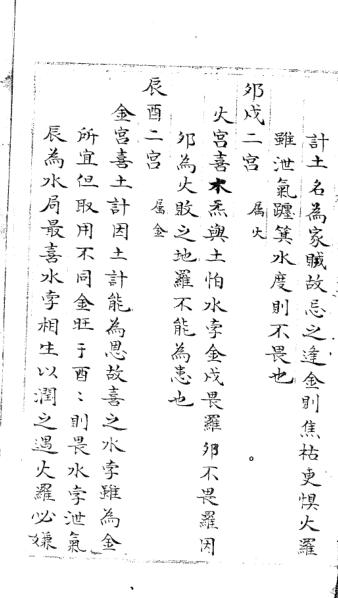 計土名為家賊故忌之逢金則焦枯更惧火羅
雖泄氣躔箕水度則不畏也
夘戍二宮 属火
火宮喜木炁與土怕水孛金戍畏羅夘不畏羅因
夘為火敗之地羅不能為恚也
辰酉二宮 属金
金宮喜土計因土計能為恩故喜之水孛雖為金
所宜但取用不同金旺于酉〻則畏水孛泄氣
辰為水局最喜水孛相生以潤之遇火羅必嫌